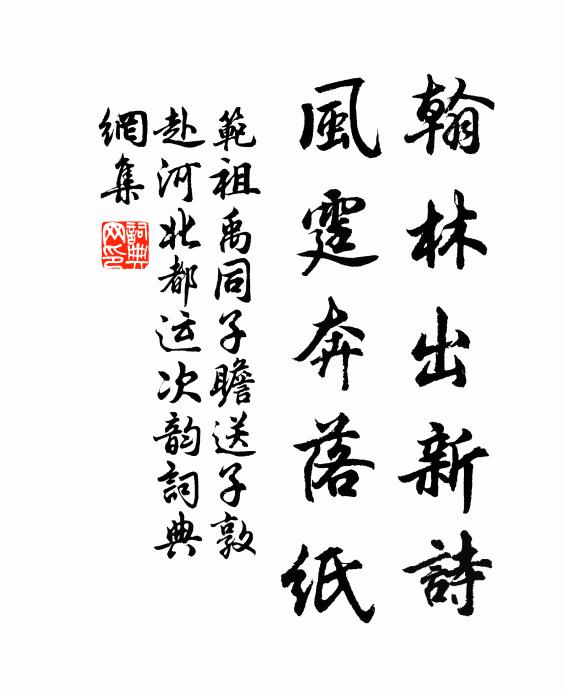 翰林出新詩
風霆奔落紙
範祖禹同子瞻送子敦
赴河北都运次韵詞典
網集
詞典
网印